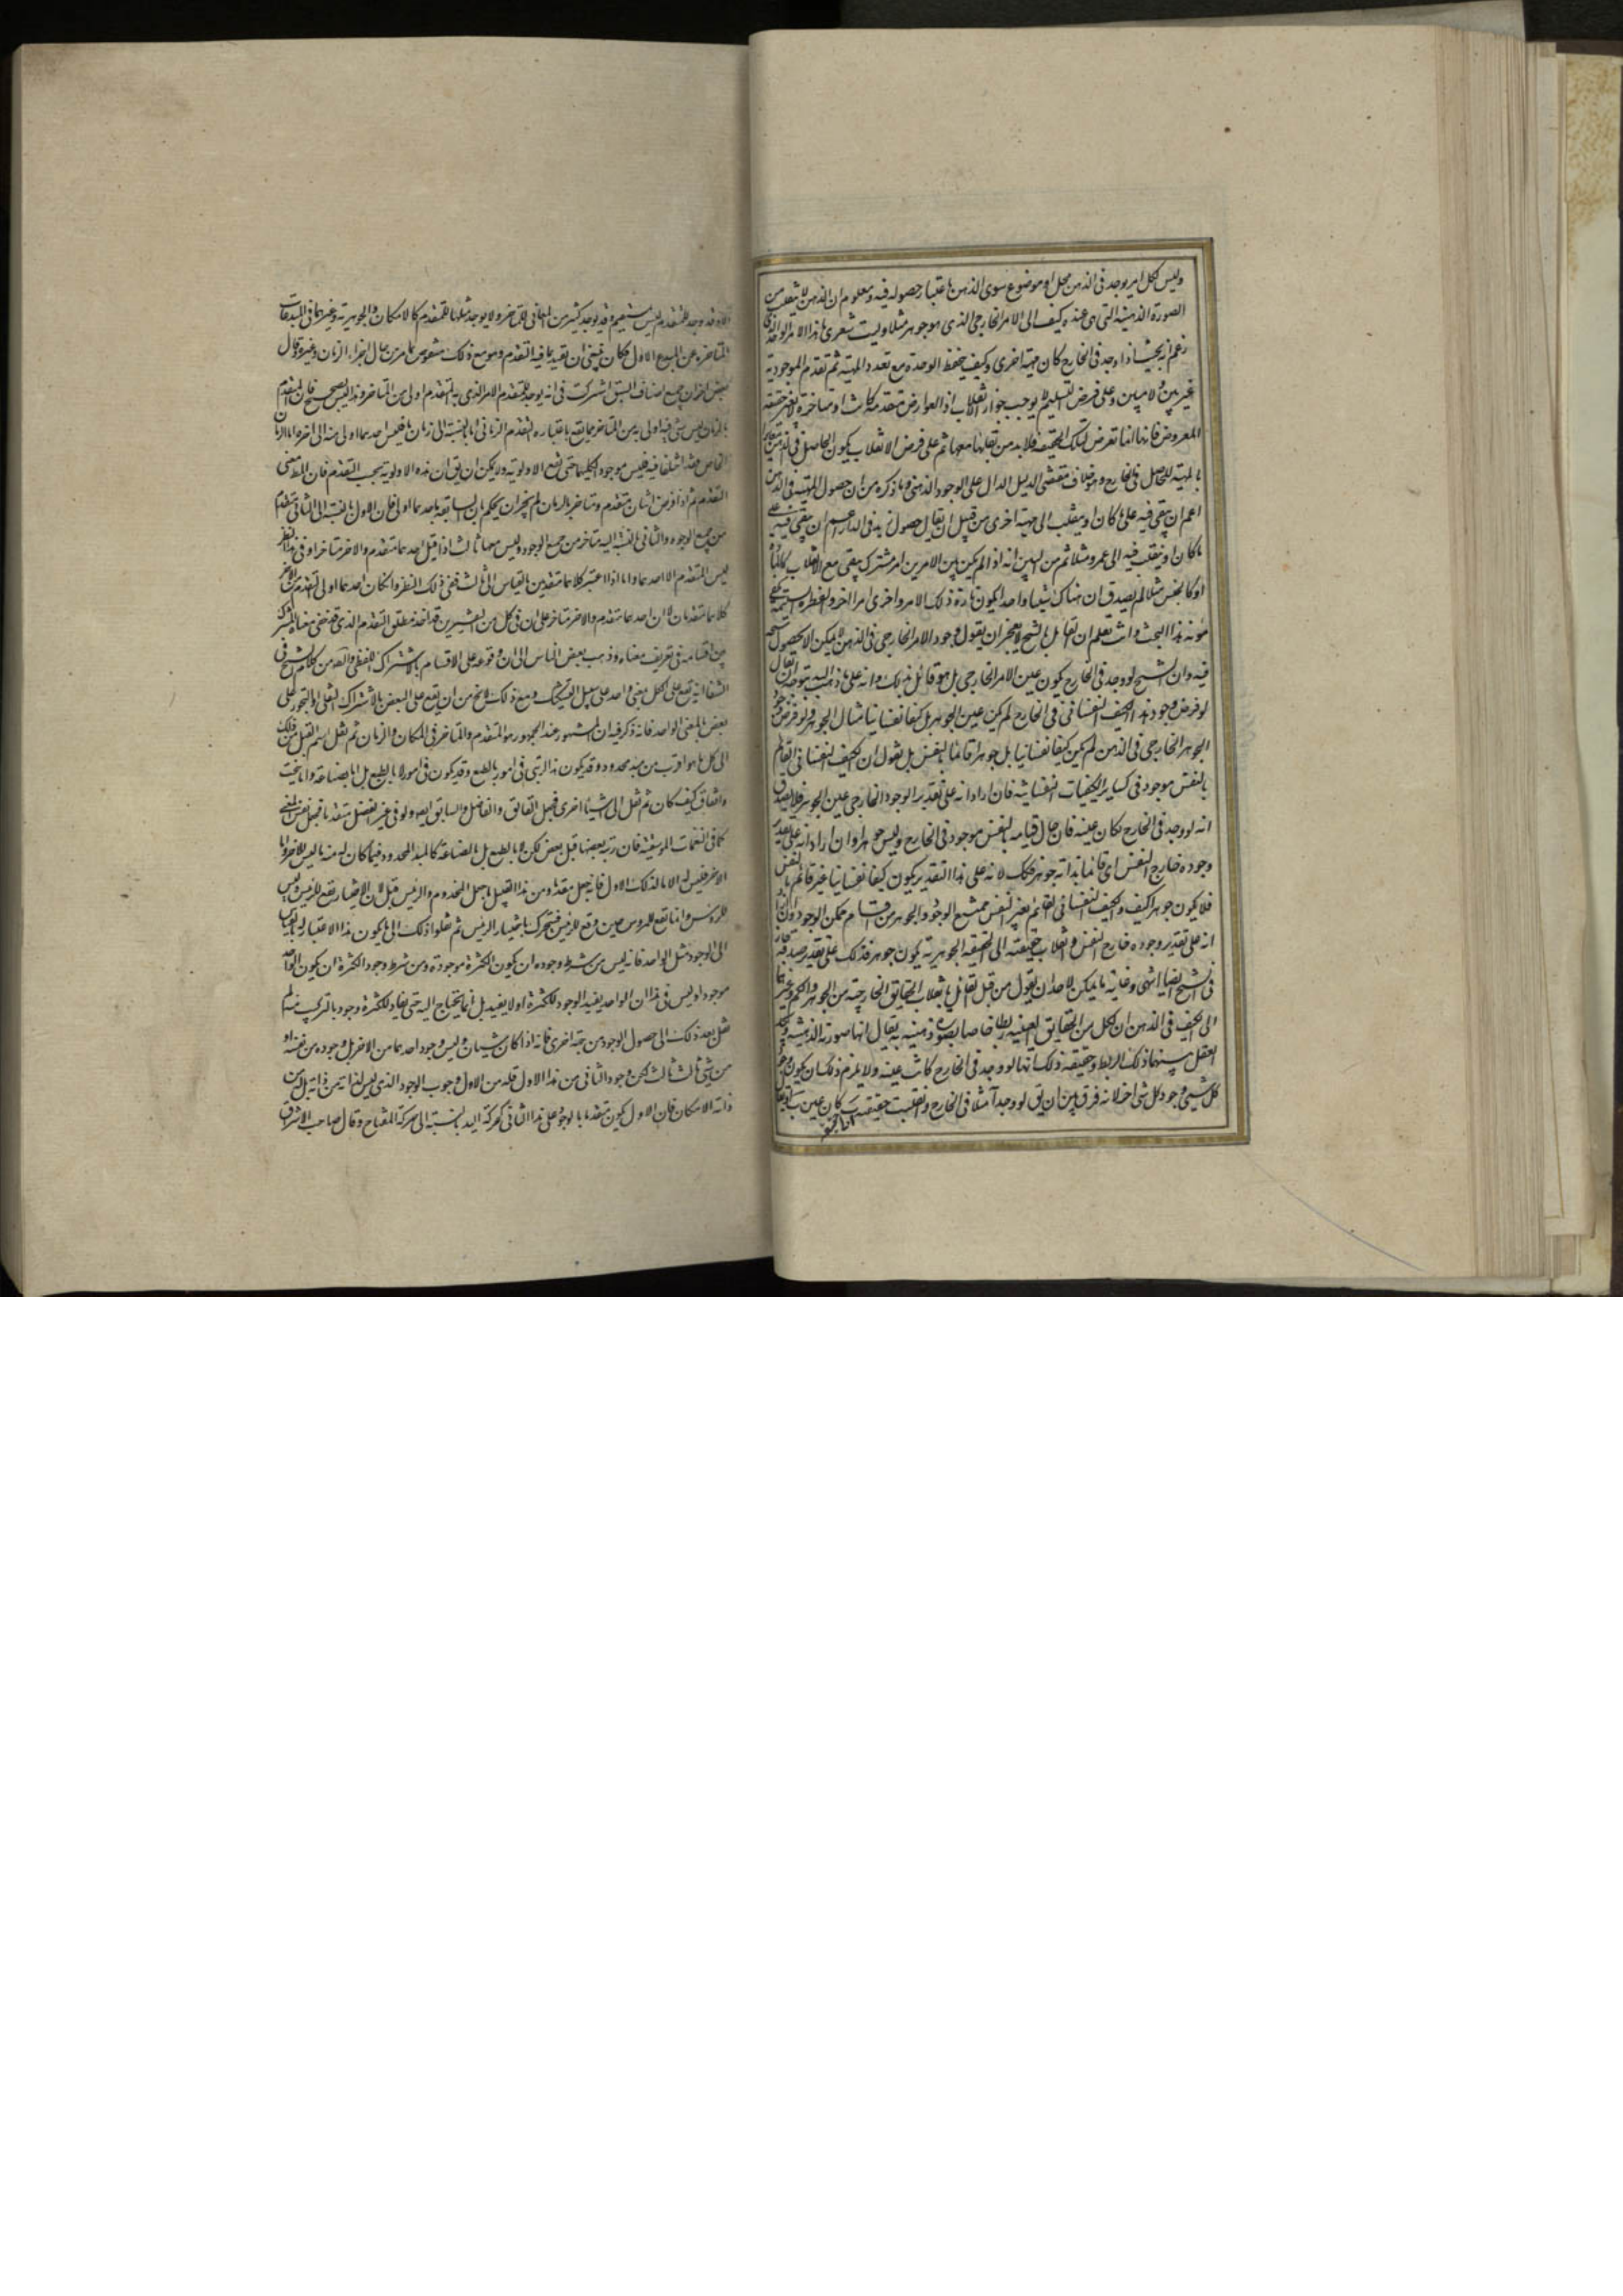 وليس لكل امر يوجد في الذهن محل او موضوع سوى الذهن باعتبار حصوله فيه ومعلوم ان الذهن لا
الصورة الذهنية التي هي عنده كيف الى الامر الخارجي الذي هو جوهر مثلا وليت شعري ما هذا الامر الواحد الذي
زعم انه بحيث اذا وجد في الخارج كان مهية اخرى وكيف ينحفظ الوحدة مع تعدد المهية ثم تقدم الموجودية
غير بين ولا مبين وعلى فرض التسليم لا يوجب جواز انقلاب اذ العوارض متقدمة كانت او متاخرة لا تغير حقيقة
المعروض فانها انما تعرض لتلك الحقيقة فلا بد من بقائها معها ثم على فرض الانقلاب يكون الحاصل في الذهن مغايرا
بالمهية للحاصل في الخارج وهو خلاف مقتضى الدليل الدال على الوجود الذهني وما ذكره من ان حصول المهية في الذهن
اعم ان يبقى فيه على ما كان او ينقلب الى مهية اخرى من قبيل ان يقال حصول زيد في الدار اعم ان يبقى فيه على
ما كان او ينقلب فيه الى عمرو مثلا ثم من البين انه اذا لم يكن بين الامرين امر مشترك يبقى مع الانقلاب كالمادة
او كالجنس مثلا لم يصدق ان هناك شيئا واحدا يكون تارة ذلك الامر واخرى امرا اخر والفطرة السليمة تكفي
مؤنة هذا البحث وانت تعلم ان القائل بالشبح لا يعجز ان يقول وجود الامر الخارجي في الذهن لا يمكن الا بحصول شبحه
فيه وان الشبح لو وجد في الخارج يكون عين الامر الخارجي بل هو قائل بذلك وانه على ما ذهب اليه يتوجه ان يقال
لو فرض وجود هذا الكيف النفساني في الخارج لم يكن عين الجوهر بل كيفا نفسانيا مثال الجوهر ولو فرض وجود
الجوهر الخارجي في الذهن لم يكن كيفا نفسانيا بل جوهرا قائما بالنفس بل نقول ان الكيف النفساني القائم
بالنفس موجود في كساير الكيفيات النفسانية فان اراد انه على تقدير الوجود الخارجي عين الجوهر فلا يصدق
انه لو وجد في الخارج لكان عينه فان حال قيامه بالنفس موجود في الخارج وليس جوهرا وان اراد انه على تقدير
وجوده خارج النفس اي قائما بذاته جوهر فكك لانه على هذا التقدير يكون كيفا نفسانيا غير قائم بالنفس
فلا يكون جوهرا كيف والكيف النفساني القائم بغير النفس ممتنع الوجود والجوهر من اقسام ممكن الوجود وان اراد
انه على تقدير وجوده خارج النفس وانقلاب حقيقته الى الحقيقة الجوهرية يكون جوهر فذلك على تقدير صدقه جار
في الشبح ايضا انتهى وغاية ما يمكن لاحد ان يقول من قبل القائل بانقلاب الحقايق الخارجية من الجوهر والكم وغيرها
الى الكيف في الذهن ان لكل من الحقايق العينية ربطا خاصا بصورة ذهنية به يقال انها صورته الذهنية ويحكم
العقل بينهما ذلك الربط وحقيقة ذلك انها لو وجد في الخارج كانت عينه ولا يلزم ذلك ان يكون وجود
كل شيء وجود كل شيء اخر لانه فرق بين ان يق لو وجد آ مثلا في الخارج وانقلبت حقيقته ب كان عين ب
المتاخرة عن المبدع الاول فكان ينبغي ان تقيد بما فيه التقدم ومع ذلك منقوض بما مر من حال اجزاء الزمان وغيره وقال
بعض اخر ان جميع اصناف السبق اشتركت في انه يوجد للمتقدم الامر الذي به المتقدم اولى من المتاخر وهذا ليس بصحيح فان المتقدم
بالزمان ليس شيء فيه اولى به من المتاخر مما يقع باعتباره التقدم الزماني
الخاص فقد اختلفا فيه فليس موجودا لكليهما حتى تقع الاولوية ولا يمكن ان يق ان هذه الاولوية بحسب التقدم فان المطلوب معنى
التقدم ثم اذا فرض اثنان متقدم ومتاخر بالزمان لم يجز ان يحكم بان السابقية باحدهما اولى فان الاول بالنسبة الى الثاني متقدم
من جميع الوجوه والثاني بالنسبة اليه متاخر من جميع الوجوه وليس معهما ثالث اذا قيل احدهما متقدم والاخر متاخر
ليس المتقدم الا احدهما واما اذا اعتبر كلاهما متقدمين بالقياس الى ثالث ففي ذلك النظر وان كان احدهما اولى بالتقدم من الاخر
كلاهما متقدمان لا ان احدهما متقدم والاخر متاخر على ان في كل من التفسيرين قد اخذ مطلق التقدم الذي قد خفي معناه المشترك
بين اقسامه في تعريف معناه وذهب بعض الناس الى ان وقوعه على الاقسام بالاشتراك اللفظي والقصد من كلام الشيخ في
الشفا انه يقع على الكل بمعنى واحد على سبيل التشكيك ومع ذلك لا يخ من ان يقع على البعض بالاشتراك النقلي او التجوز وعلى
بعض بالمعنى الواحد فانه ذكر فيه ان المشهور عند الجمهور هو المتقدم والمتاخر في المكان والزمان ثم نقل اسم القبل من ذلك
الى كل ما هو اقرب من مبدء محدود وقد يكون هذا الرتبي في امور بالطبع وقد يكون في امور لا بالطبع بل اما بصناعة واما ببخت
واتفاق كيف كان ثم نقل الى اشياء اخرى فجعل الفائق والفاضل والسابق ايضا ولو في غير الفضل متقدما فجعل نفس المعنى
كما في النغمات الموسيقية فان رتبة بعضها قبل بعض لكن لا بالطبع بل بالصناعة كالمبدء المحدود فيما كان له منه ما ليس للاخر واما
الاخر فليس له الا ما لذلك الاول فانه جعل متقدما ومن هذا القبيل ما جعل المخدوم والرئيس قبل لان الاختيار يقع للرئيس وليس
للمرؤس وانما يقع للمرؤس حين وقع للرئيس فيتحرك باختيار الرئيس ثم نقلوا ذلك الى ما يكون هذا الاعتبار له بالقياس
الى الوجود مثل الواحد فانه ليس من شرط وجوده ان يكون الكثرة موجودة ومن شرط وجود الكثرة ان يكون الواحد
موجودا وليس في هذا ان الواحد يفيد الوجود للكثرة او لا يفيد بل انما يحتاج اليه حتى يفاد للكثرة وجود بالتركيب منه ثم
نقل بعد ذلك الى حصول الوجود من جهة اخرى فانه اذا كان شيئان وليس وجود احدهما من الاخر بل وجوده من نفسه او
من شيء ثالث لكن وجود الثاني من هذا الاول فله من الاول وجوب الوجود الذي ليس لذاته من ذاته بل له من
ذاته الامكان فان الاول يكون متقدما بالوجود على هذا الثاني كحركة اليد بالنسبة الى حركة المفتاح وقال صاحب الاشراق